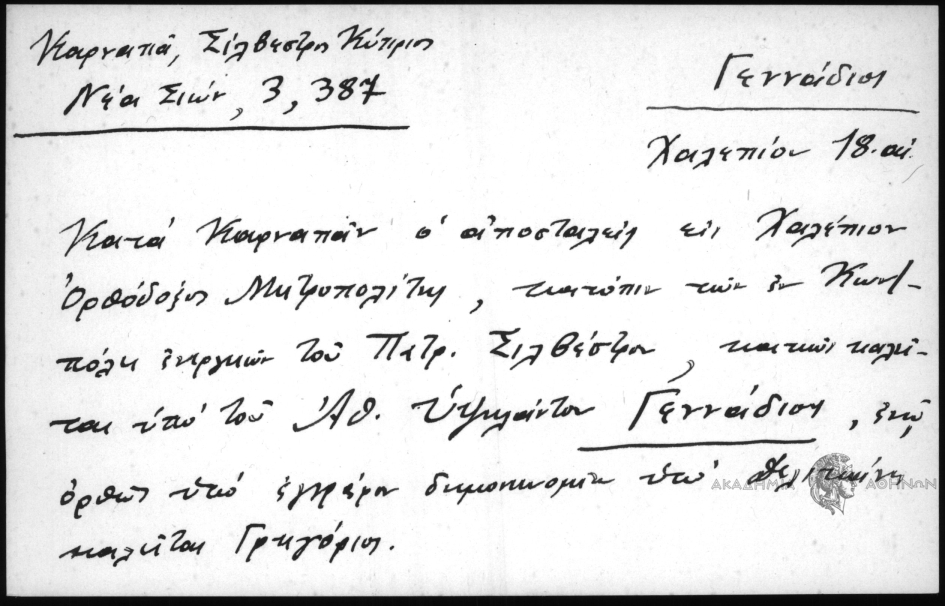 Καρναπᾶ, Σίλβεστρος Κύπριος
Νέα Σιών, 3, 387
Γεννάδιος
Χαλεπίον 18. αἰ.
Κατά Καρναπᾶν ὁ ἀποσταλείς εἰς Χαλέπιον
Ὀρθόδοξος Μητροπολίτης, κατόπιν τῶν ἐν Κων/-
πόλει ἐνεργειῶν τοῦ Πατρ. Σιλβέστρου, κακῶς καλεῖ-
ται ὑπό τοῦ Ἀθ. Ὑψηλάντου Γεννάδιος, ἐνῶ
ὀρθῶς ὑπό ἐγγράφου δημοσιευομένου ὑπό
καλεῖται Γρηγόριος.
ΑΚΑΔΗΜΙΑ ΑΘΗΝΩΝ